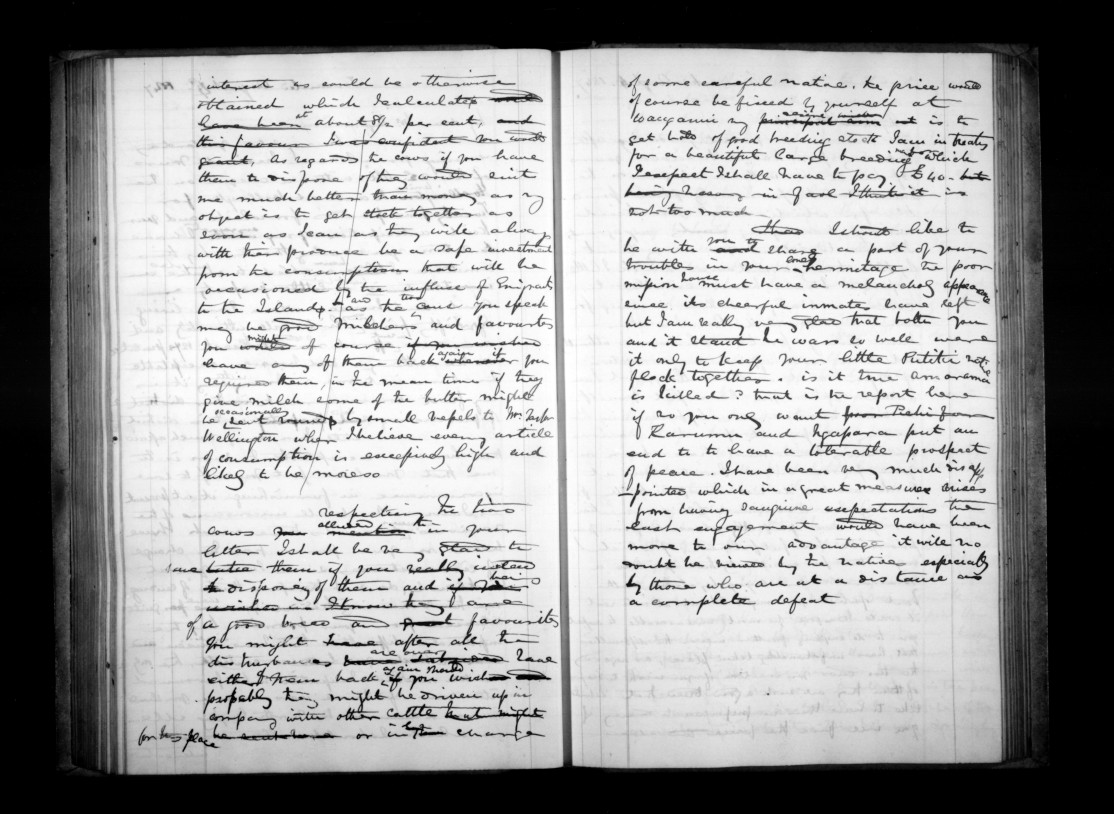 interest as could be otherwise
obtained which I calculate would
have been at about 8½ per cent, and
this favour I was confident you would
grant, As regards the cows if you have
them to dispose of they would suit
me much better than money as my
object is to get stock together as
soon as I can as they will always
with their produce be a safe investment
from the consumption that will be
occasioned by the influx of Emigrants
to the Islands. as the two cows you speak
may be good milchers and favourites
you might of course if you wished
have any of them back again if you
required them, in the mean time if they
give milch some of the butter might
be occasionally sent round by small vessels to Mr.
Wellington when I believe every article
of consumption is excessively high and
likely to be more so
respecting the two
cows you mention alluded to in your
letter I shall be very glad to
take them if you really intend
to disposing of them and if you
wishes as I know they are
of a good breed and great favourites
You might have after all the
disturbances are over have
either of them back again should you wish and
probably they might be driven up in
company with other cattle but might
be sent here or in charge
for this place
of some careful native. the price would
of course be fixed by yourself at
my principal aim is to
get hold of good breeding stock I am in treaty
for a beautiful large breeding mare which
I expect I shall have to pay £40. but
being heavy in foal I think it is
not too much
thus I should like to
be with you to and share a part of your
troubles in your lonely hermitage the poor
mission house must have a melancholy appearance
since its cheerful inmates have left
but I am really very glad that both you
and it stand he was so well were
it only to keep your little Putiki native
flock together. is it true
is killed? that is the report here
if so you only want
Karumu and Ngapara put an
end to to have a tolerable prospect
of peace. I have been very much disap
-pointed which in a great measure arises
from having sanguine expectations the
last engagement would have been
more to our advantage it will no
doubt be viewed by the natives especially
by those who are at a distance as
a complete defeat